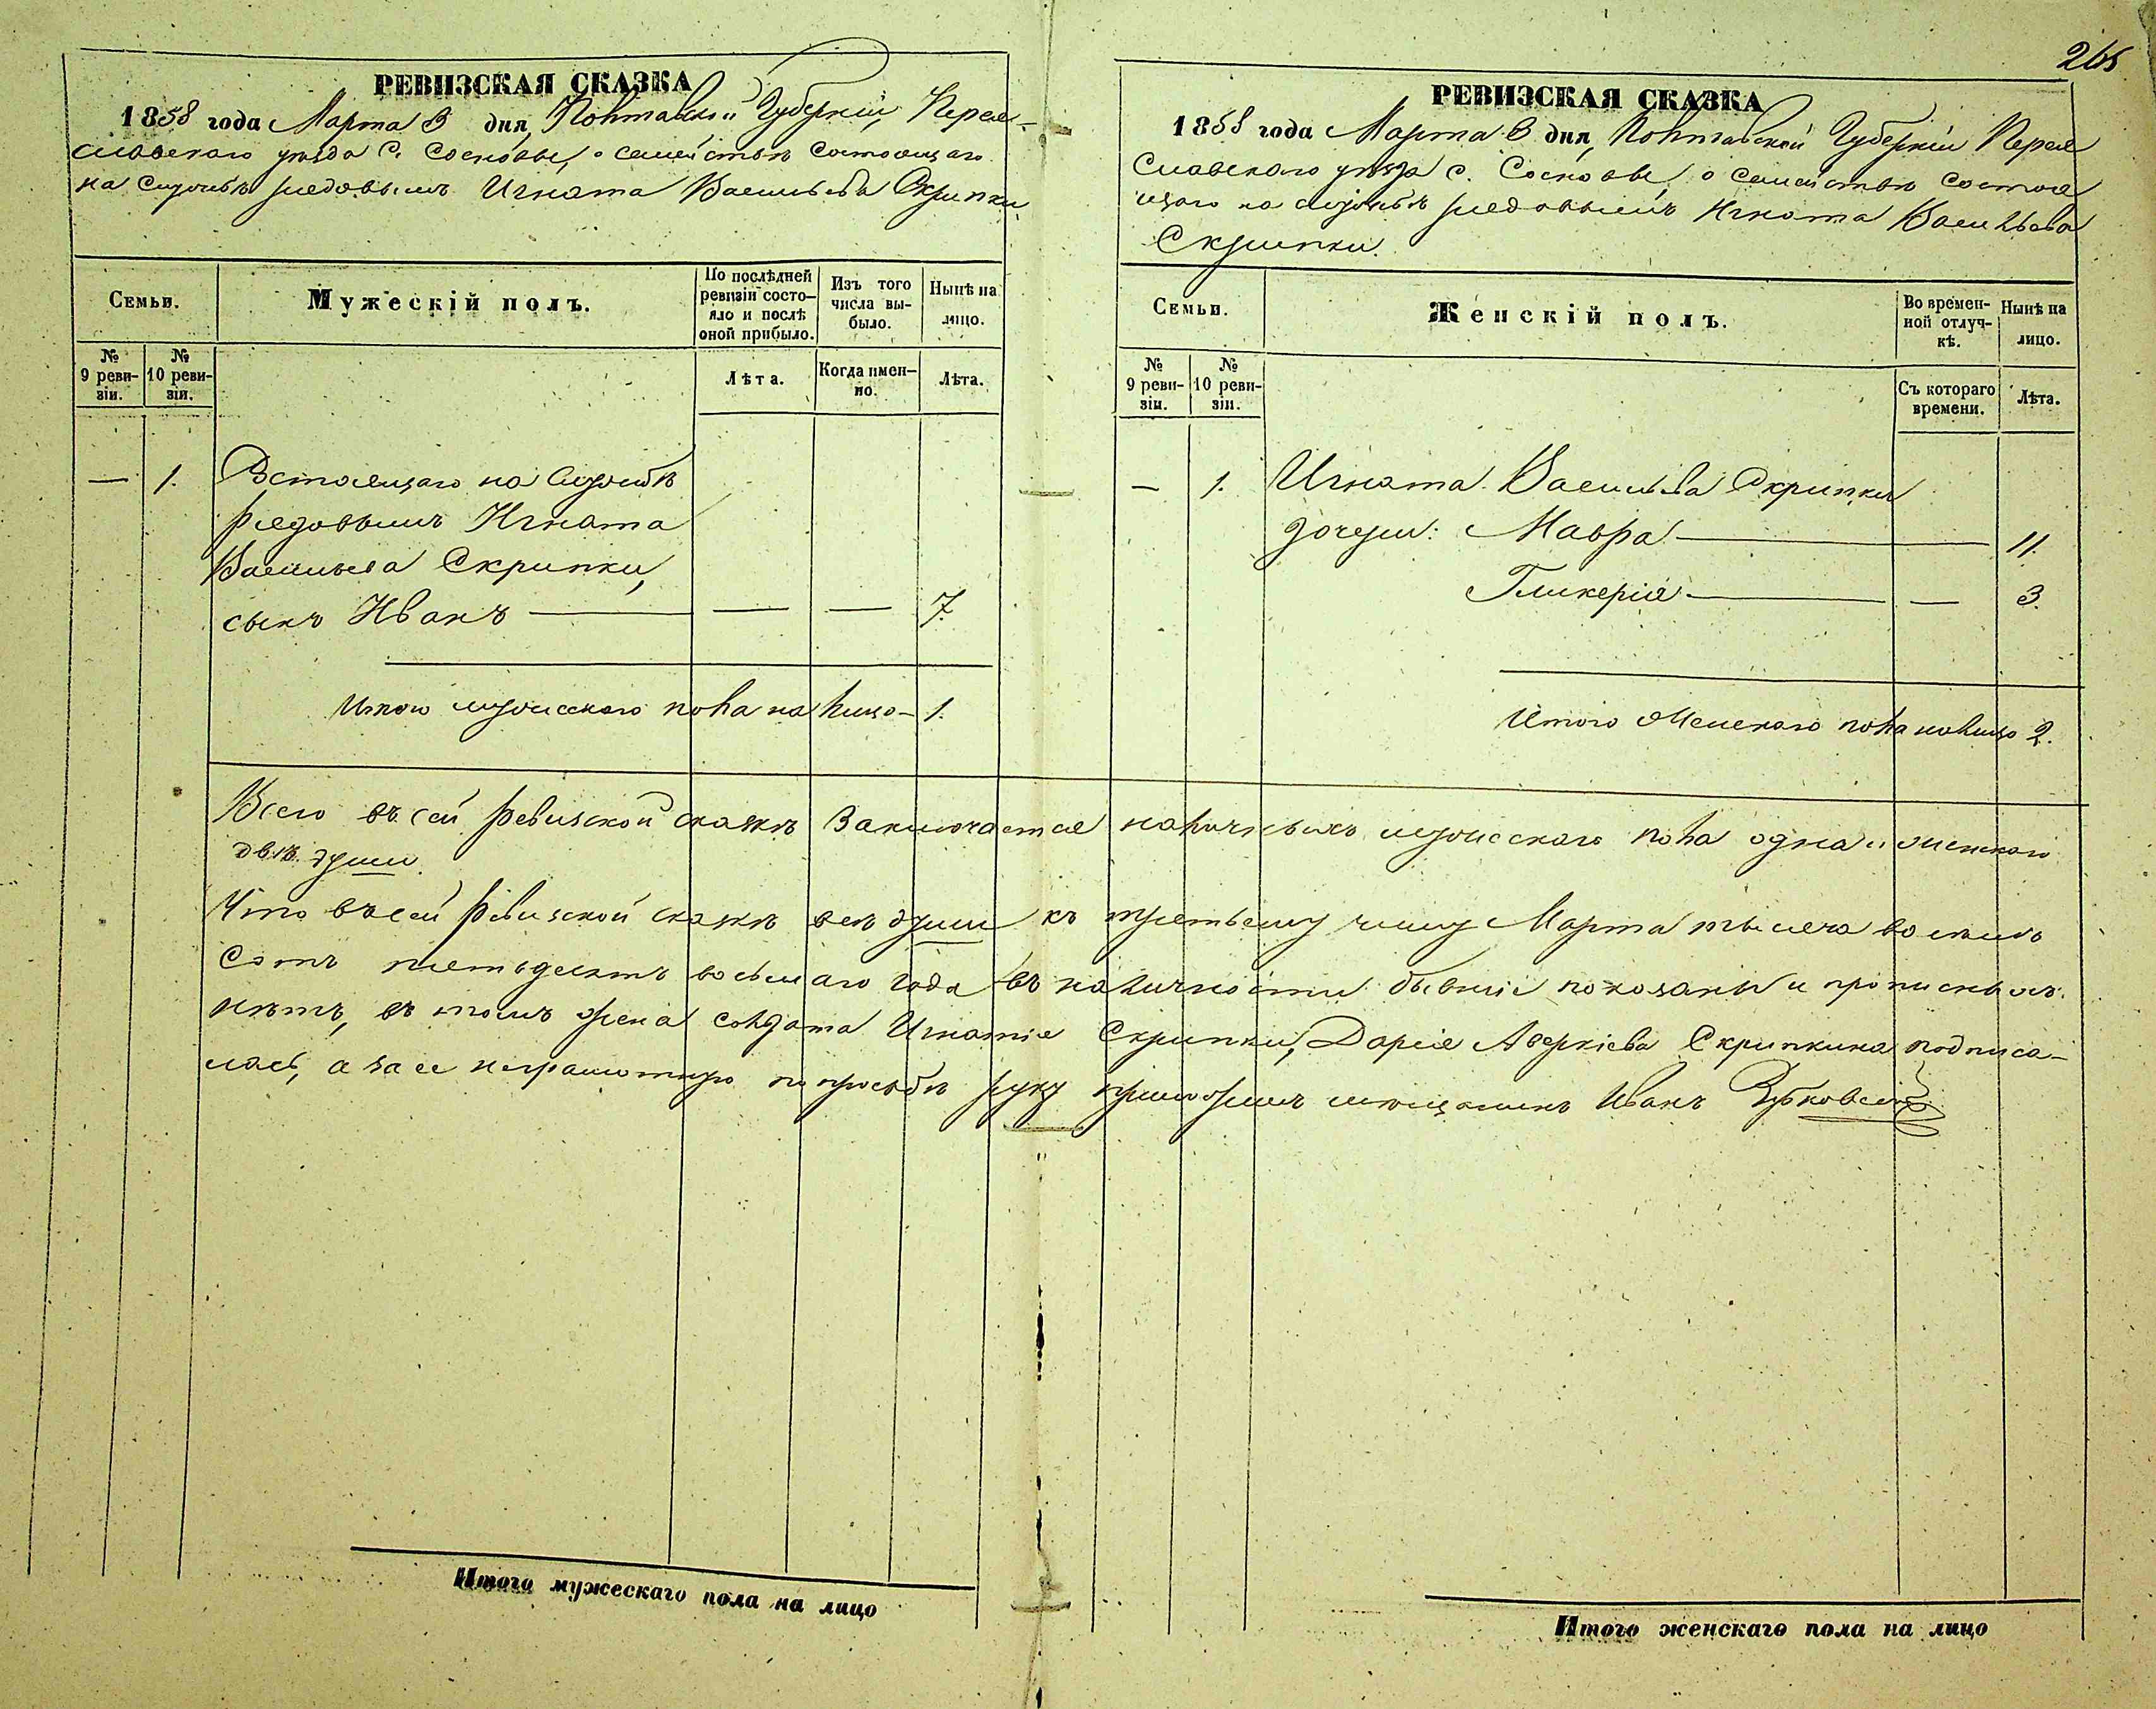 265
РЕВИЗСКАЯ СКАЗКА
1858 года Марта 3 дня, Полтавской Губерніи, Перея-
славскаго уѣзда с. Сосновы, о семействѣ состоящаго
на службѣ рядовымъ Игната Васильева Скрипки
Семьи.
Мужескій полъ.
По послѣдней ревизіи состо-
яло и послѣ оной прибыло.
Изъ того числа вы-
было.
Нынѣ на лицо.
№ 9 реви-
зіи.
№ 10 реви-
зіи.
Лѣта.
Когда имен-
но.
Лѣта.
— 1. Состоящаго на службѣ
рядовымъ Игната
Васильева Скрипки,
сынъ Иванъ — — — 7.
Итого мужескаго пола на лицо — 1.
РЕВИЗСКАЯ СКАЗКА
1858 года Марта 3 дня, Полтавской Губерніи Перея
славскаго уѣзда с. Сосновы, о семействѣ состоя
щаго на службѣ рядовымъ Игната Васильева
Скрипки.
Семьи.
Женскій полъ.
Во времен-
ной отлуч-
кѣ.
Нынѣ на лицо.
№ 9 реви-
зіи.
№ 10 реви-
зіи.
Съ котораго времени.
Лѣта.
— 1. Игната Васильева Скрипки
дочери: Мавра — — 11.
Гликерія — — 3.
Итого Женскаго пола налицо 2.
Всего въ сей ревизской сказкѣ заключается наличныхъ мужескаго пола одна и женскаго
двѣ души.
Что въ сей ревизской сказкѣ всѣ души къ третьему числу Марта тысяча восемь
сотъ пятьдесятъ восьмаго года въ наличности бывшіе показаны и прописныхъ
нѣтъ, въ томъ жена солдата Игнатія Скрипки, Дарія Аверкіева Скрипкина подписа-
лась, а за ее неграмотную по просьбѣ руку приложилъ мѣщанинъ Иванъ
Итого мужескаго пола на лицо
Итого женскаго пола на лицо